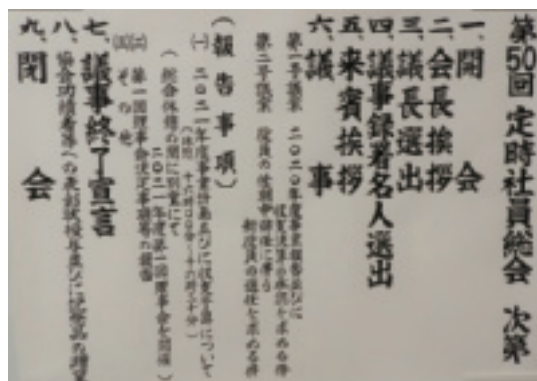 第50回 定時社員総会 次第
一、開会
二、会長挨拶
三、議長選出
四、議事録署名人選出
五、来賓挨拶
六、議事
第一号議案 二〇二〇年度事業報告並びに
収支決算の承認を求める件
第二号議案 役員の任期中辞任に伴う
新役員の選任を求める件
(報告事項)
(一) 二〇二一年度事業計画並びに収支予算について
(休憩 十六時〇〇分~十六時二十分)
(総合休憩の間に別室にて
二〇二一年度第一回理事会を開催)
(二) 第一回理事会決定事項等の報告
(三) その他
七、議事終了宣言
八、協会功績者等への表彰状授与並びに記念品の贈呈
九、閉会